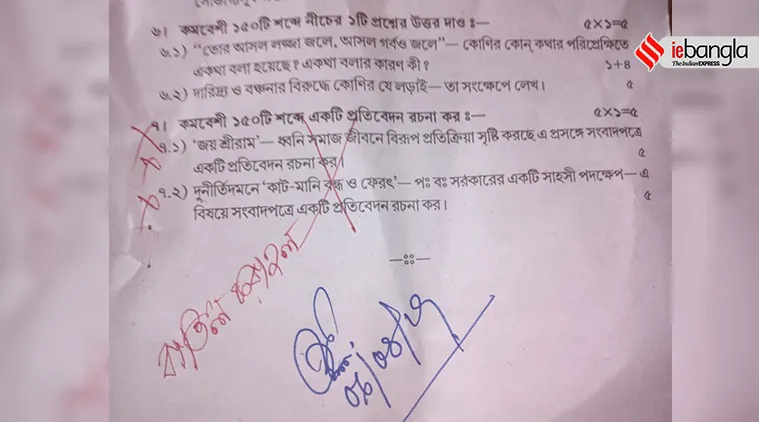 ৬। কমবেশী ১৫০টি শব্দে নীচের ১টি প্রশ্নের উত্তর দাও ঃ— ৫×১=৫
৬.১) “তোর আসল লজ্জা জলে, আসল গর্বও জলে”— কোণির কোন্ কথার পরিপ্রেক্ষিতে
একথা বলা হয়েছে? একথা বলার কারণ কী? ১+৪
৬.২) দারিদ্র্য ও বঞ্চনার বিরুদ্ধে কোণির যে লড়াই— তা সংক্ষেপে লেখ। ৫
৭। কমবেশী ১৫০টি শব্দে একটি প্রতিবেদন রচনা কর ঃ— ৫×১=৫
৭.১) ‘জয় শ্রীরাম’— ধ্বনি সমাজ জীবনে বিরূপ প্রতিক্রিয়া সৃষ্টি করছে এ প্রসঙ্গে সংবাদপত্রে
একটি প্রতিবেদন রচনা কর। ৫
৭.২) দুর্নীতিদমনে ‘কাট-মানি বন্ধ ও ফেরৎ’— পঃ বঃ সরকারের একটি সাহসী পদক্ষেপ— এ
বিষয়ে সংবাদপত্রে একটি প্রতিবেদন রচনা কর। ৫
বাতিল করা হল
iebangla
The Indian EXPRESS